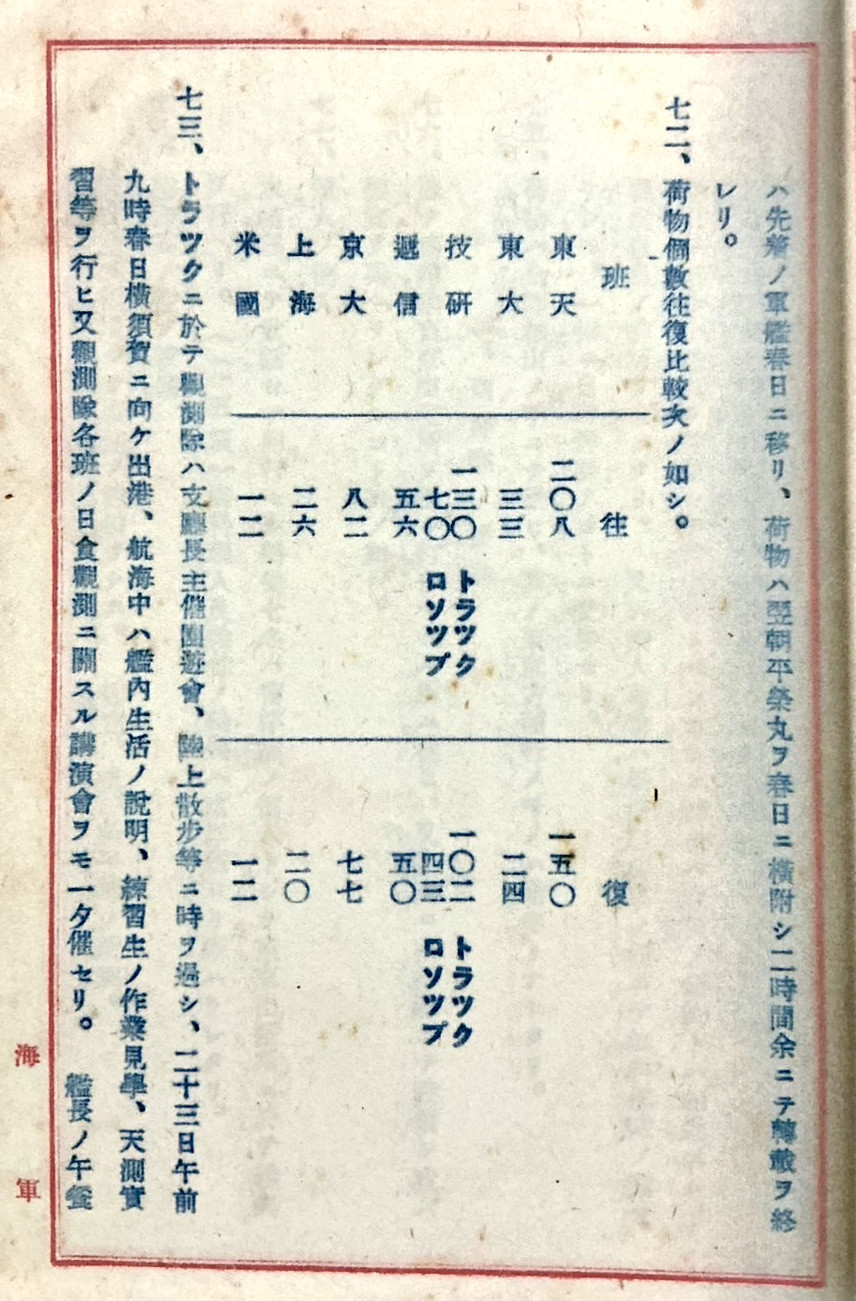 ハ先着ノ軍艦春日ニ移リ、荷物ハ翌朝平榮丸ヲ春日ニ横附シ二時間余ニテ轉載ヲ終
レリ。
七二、荷物個數往復比較次ノ如シ。
班 往 復
東天 二〇八 一五〇
東大 三三 二四
技研 一三〇 トラツク 一〇二 トラツク
七〇 ロソツプ 四三 ロソツプ
遞信 五六 五〇
京大 八二 七七
上海 二六 二〇
米國 一二 一二
七三、トラツクニ於テ觀測隊ハ支廳長主催園遊會、陸上散步等ニ時ヲ過シ、二十三日午前
九時春日横須賀ニ向ケ出港、航海中ハ艦內生活ノ說明、練習生ノ作業見學、天測實
習等ヲ行ヒ又觀測隊各班ノ日食觀測ニ關スル講演會ヲモ一夕催セリ。 艦長ノ午餐
海軍